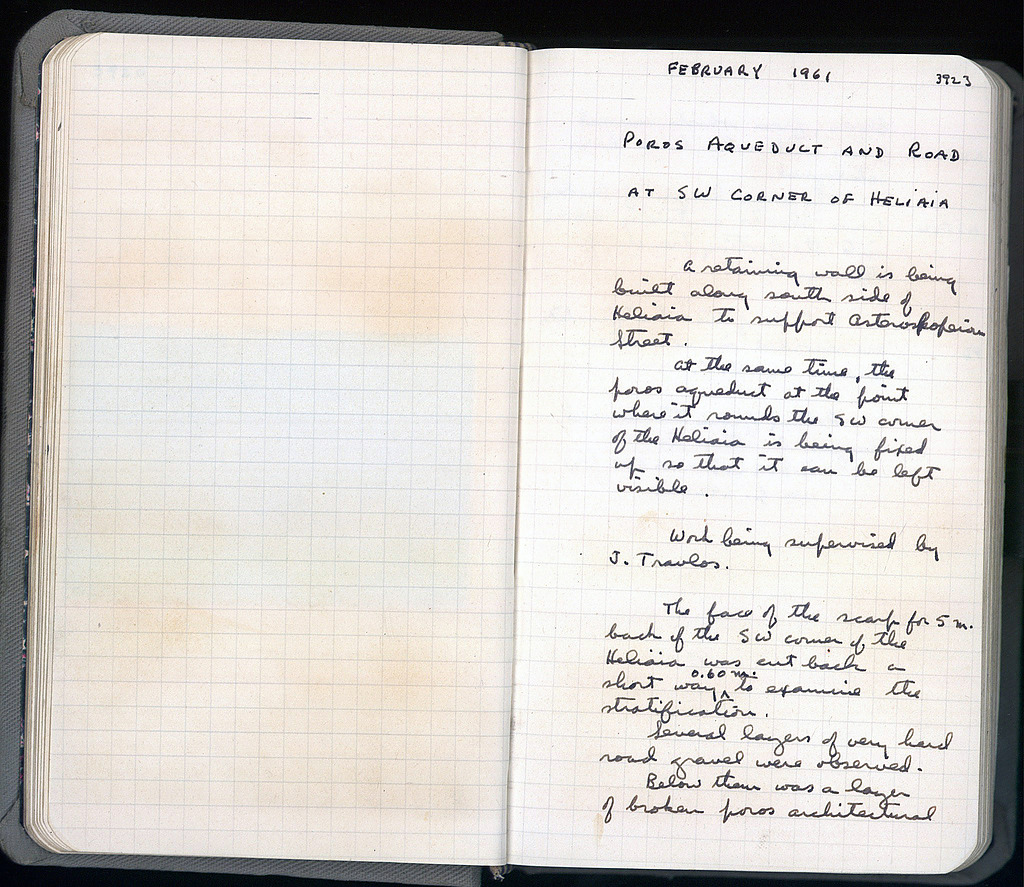 FEBRUARY 1961
3923
POROS AQUEDUCT AND ROAD
AT SW CORNER OF HELIAIA
A retaining wall is being
built along south side of
Heliaia to support Asteroskopeion
Street.
At the same time, the
poros aqueduct at the point
where it rounds the SW corner
of the Heliaia is being fixed
up so that it can be left
visible.
Work being supervised by
J. Travlos.
The face of the scarp for 5 m.
back of the SW corner of the
Heliaia was cut back a
0.60 m.
short way ^ to examine the
stratification.
Several layers of very hard
road gravel were observed.
Below them was a layer
of broken poros architectural